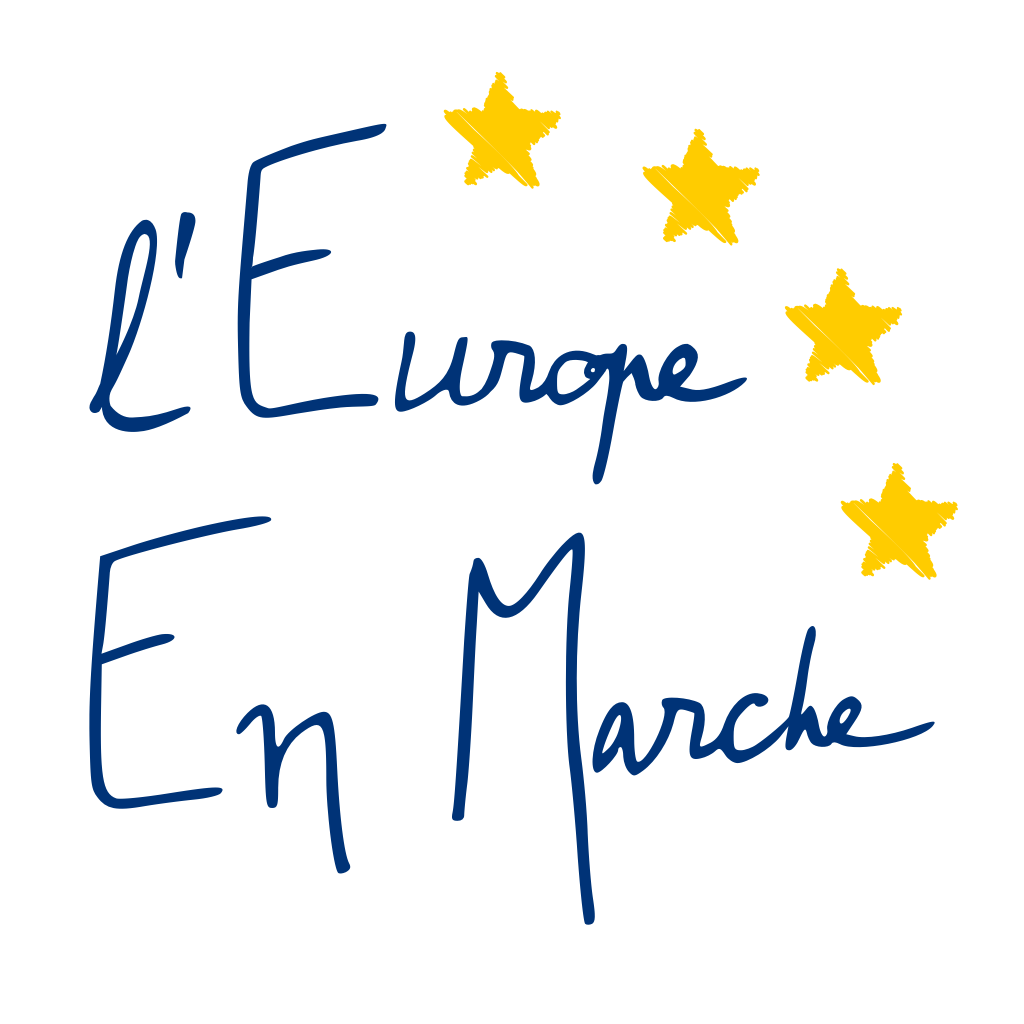 l'Europe
En Marche